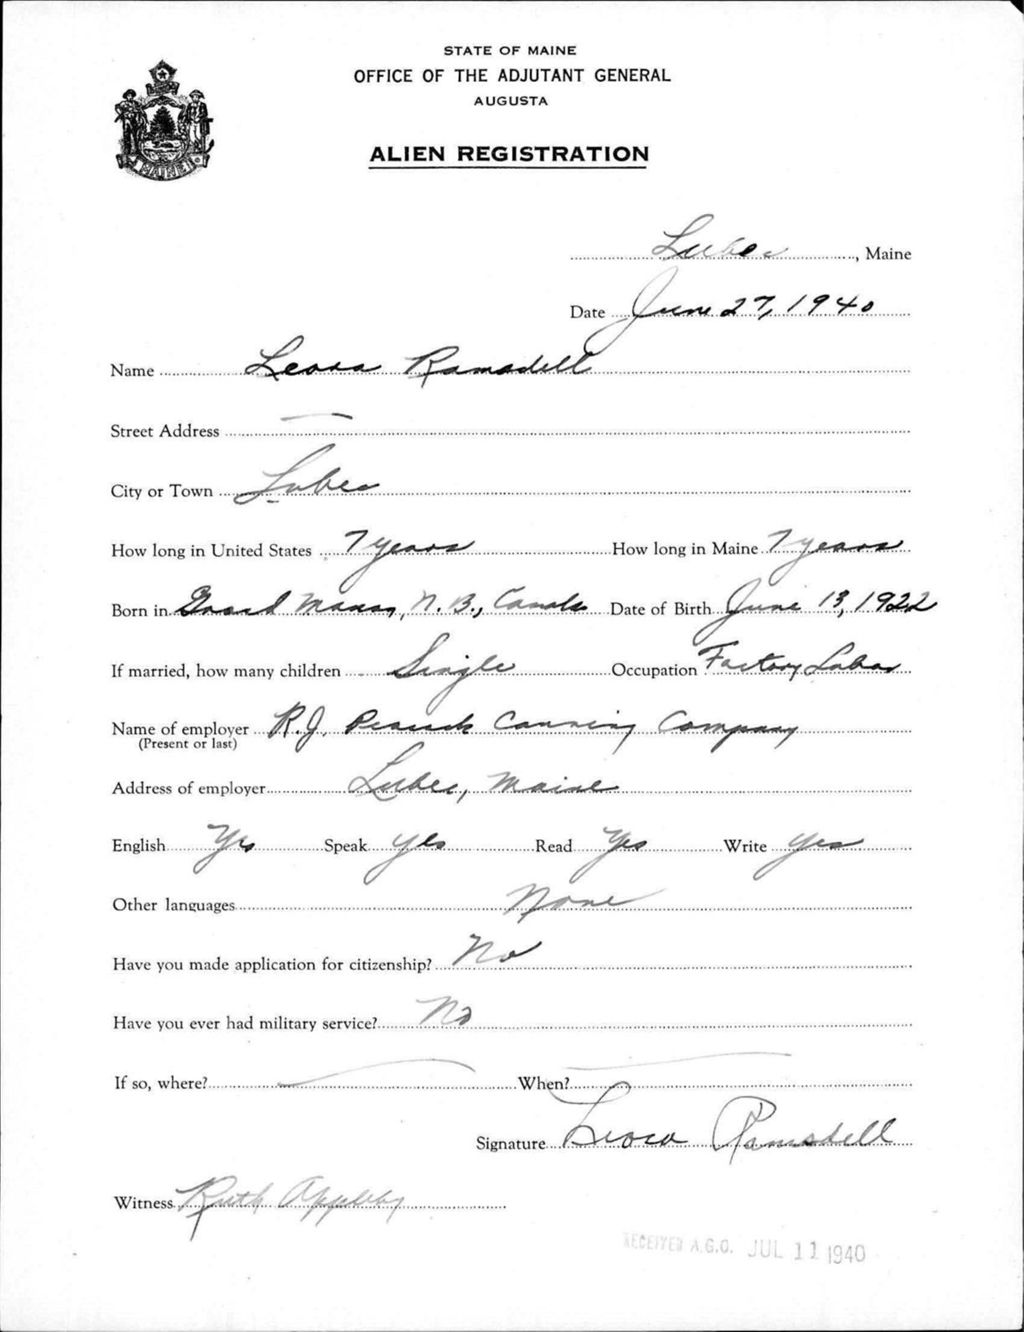 STATE OF MAINE
OFFICE OF THE ADJUTANT GENERAL
AUGUSTA
ALIEN REGISTRATION
MAINE
Lubec, Maine
Date June 27, 1940
Name Leora Ramsdell
Street Address —
City or Town Lubec
How long in United States 7 years How long in Maine 7 years
Born in Grand Manan, N.B., Canada Date of Birth June 13, 1922
If married, how many children Single Occupation Factory Labor
Name of employer R.J. Peacock Canning Company
(Present or last)
Address of employer Lubec, Maine
English Yes Speak yes Read Yes Write yes
Other languages None
Have you made application for citizenship? No
Have you ever had military service? No
If so, where? — When? —
Signature Leora Ramsdell
Witness Ruth Appleby
RECEIVED A.G.O. JUL 11 1940